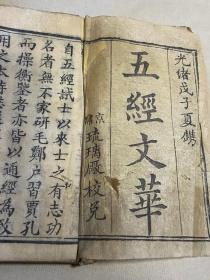 光緒戊子夏鐫
五經文華
京都琉璃廠校兌
自五經試士以來士之有志功
名者無不家研毛鄭戶習賈孔
而操衡鑒者亦皆以通經為政